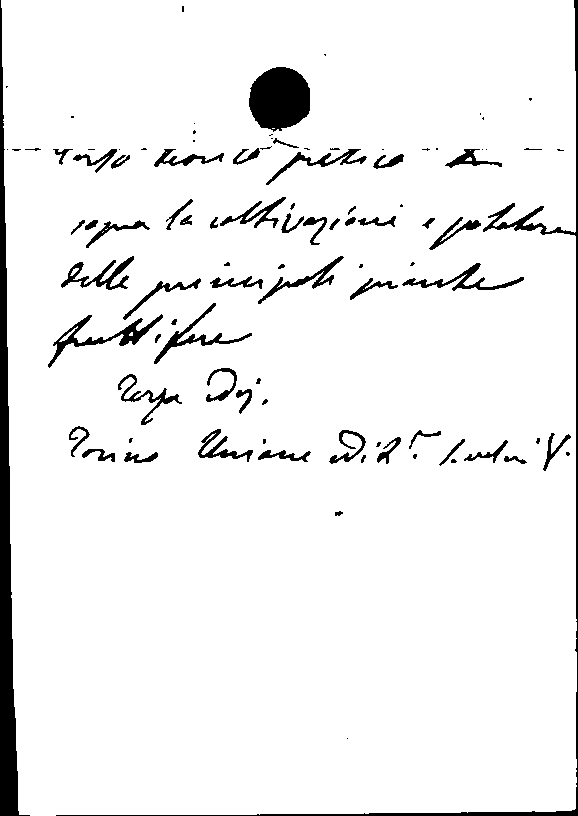 Corso teorico pratico
sopra la coltivazione e potatura
delle principali piante
fruttifere
Terza Ediz.
Torino Unione Edit.